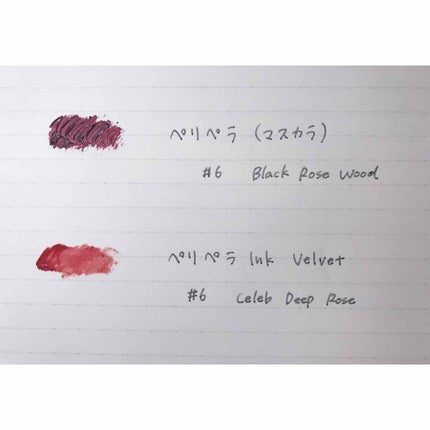 ペリペラ (マスカラ)
#6 Black Rose Wood
ペリペラ Ink Velvet
#6 Celeb Deep Rose